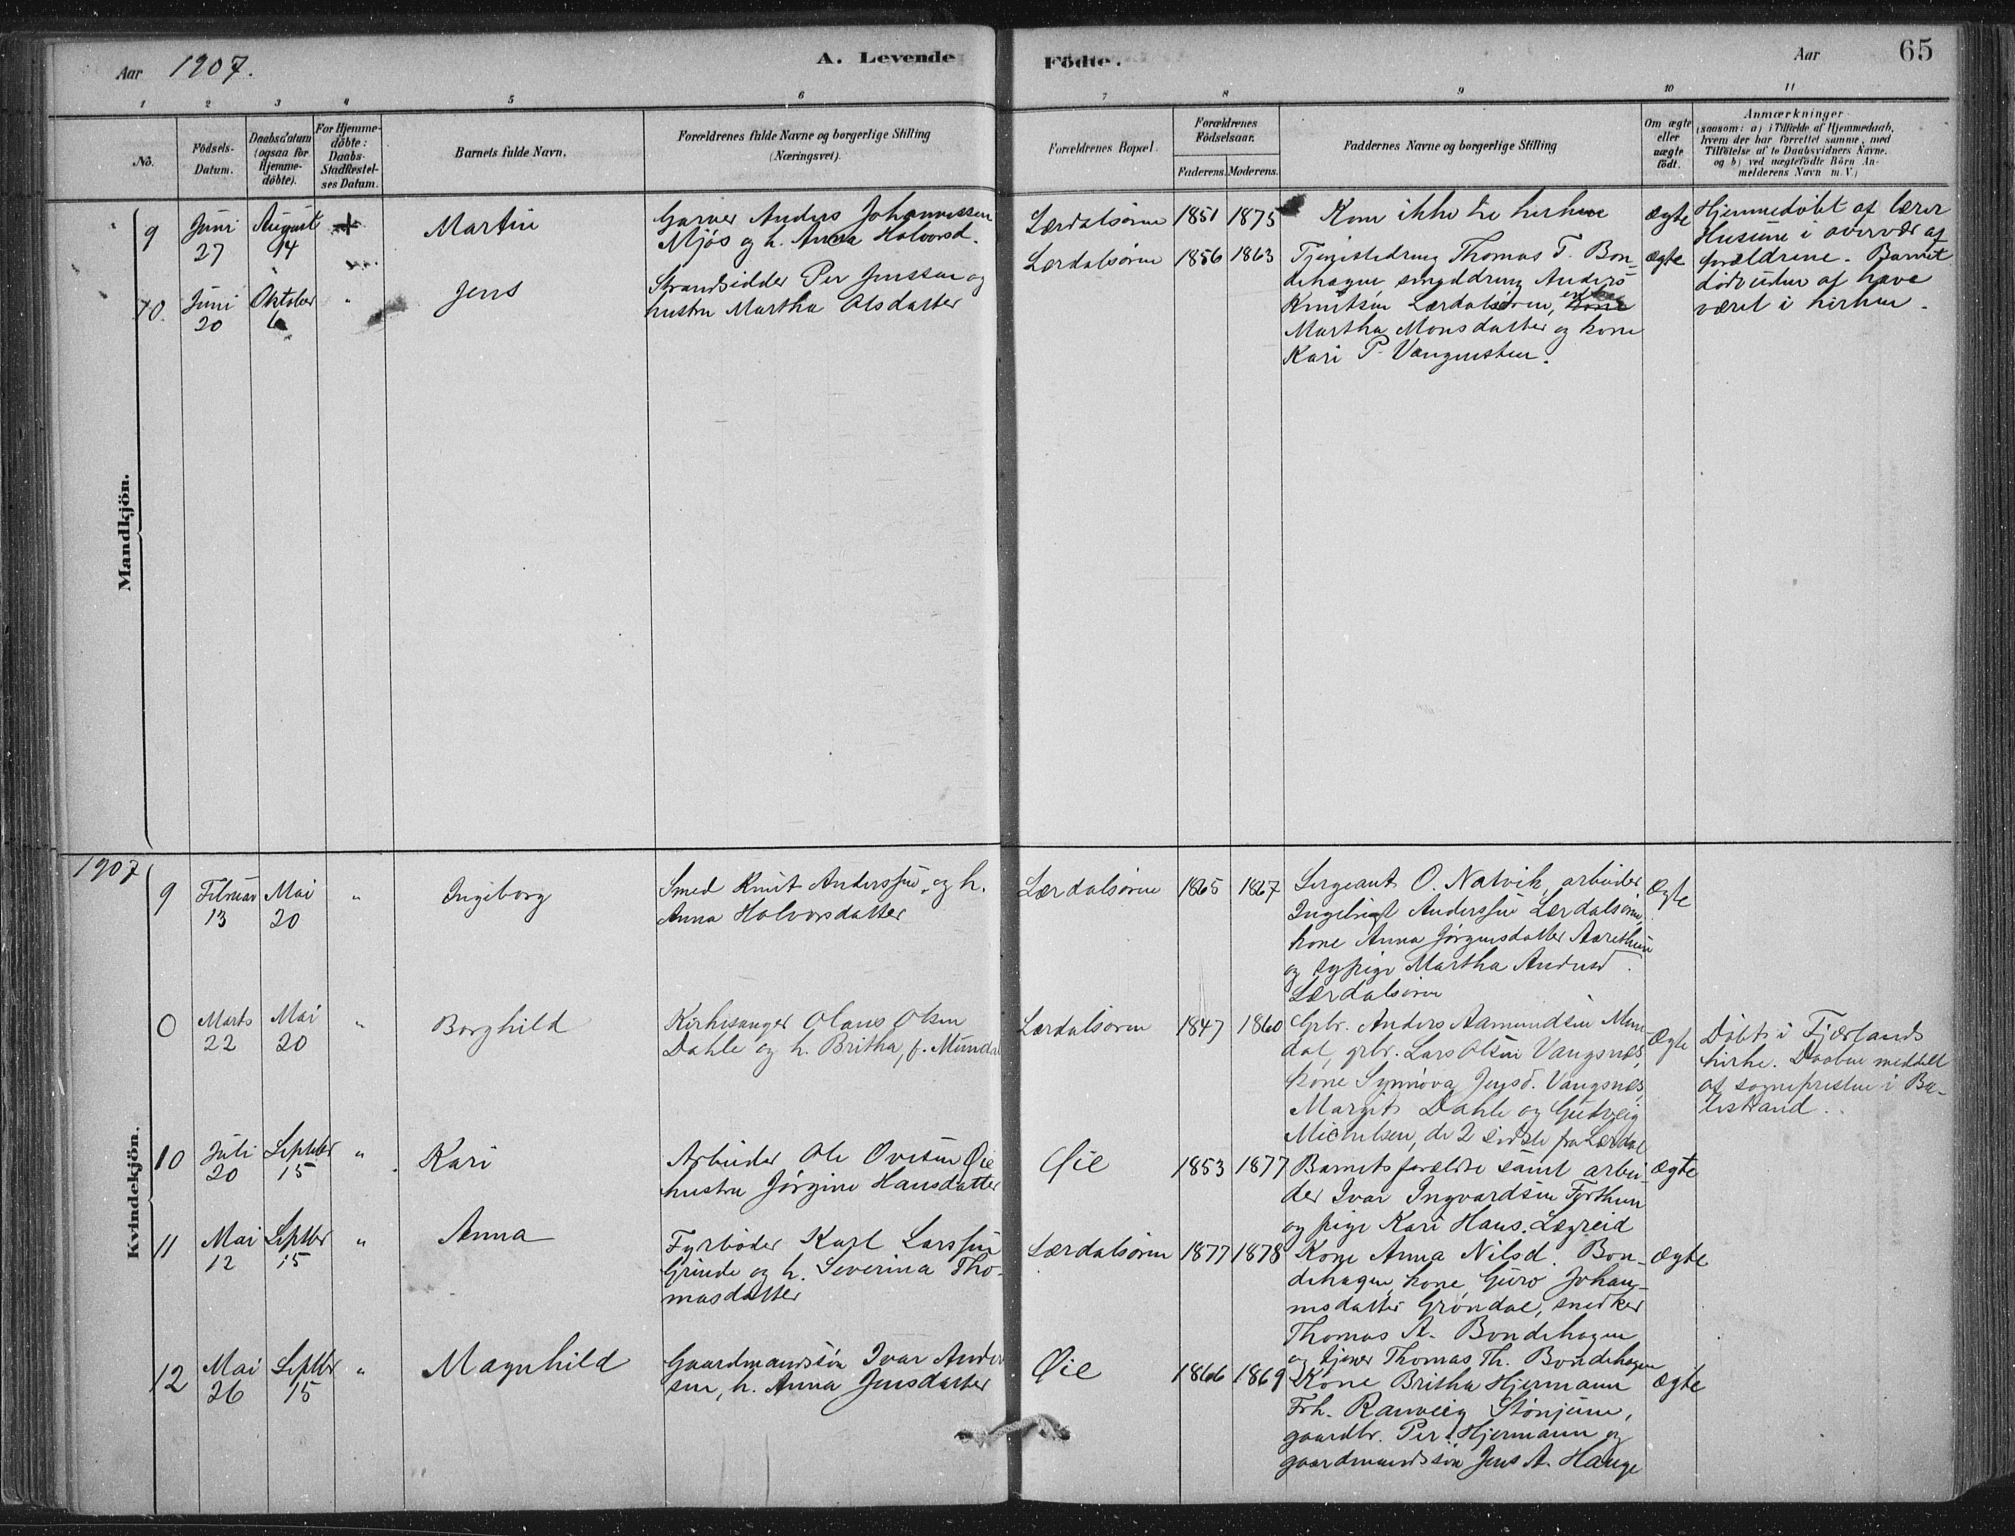 Aar 1907.
A. Levende Födte.
Aar
65
1 2 3 4 5 6 7 8 9 10 11
No.
Födsels-
Datum.
Daabsdatum
(ogsaa for
Hjemme-
döbte).
For Hjemme-
döbte:
Daabs-
Stadfæstel-
ses Datum.
Barnets fulde Navn.
Forældrenes fulde Navne og borgerlige Stilling
(Næringsvei).
Forældrenes Bopæl.
Forældrenes
Födselsaar.
Faderens. Moderens.
Faddernes Navne og borgerlige Stilling
Om ægte
eller
uægte
födt.
Anmærkninger
(saasom: a) i Tilfælde af Hjemmedaab,
hvem der har forrettet samme, med
Tilföielse af to Daabsvidners Navne,
og b) ved uægtefödte Börn An-
melderens Navn m. V.)
Mandkjön.
9
Juni
27
August
14
+
Martin
Garver Anders Johannessen
Mjøs og h. Anna Halvorsd.
Lærdalsøren
1851
1875
Kom ikke til kirken
ægte
Hjemmedøbt af lærer
Husum i overvær af
forældrene. Barnet
døde uden at have
været i kirken.
10.
Juni
20
Oktober
6
"
Jens
Strandsidder Per Jenssen og
hustru Martha Olsdatter
Lærdalsøren
1856
1863
Tjenestedreng Thomas T. Bon-
dehagen Anders
Knutsen Lærdalsøren,
Martha Monsdatter og kone
Kari P. Vangensteen.
ægte
1907
Kvindekjön.
9
Februar
13
Mai
20
"
Ingeborg
Smed Knut Anderssen og h.
Anna Halvorsdatter
Lærdalsøren
1865
1867
Sergeant O. Natvik, arbeider
Ingebrigt Anderssen Lærdalsøren,
kone Anna Jørgensdatter Aarethun
og sypige Martha Andersd.
Lærdalsøren
Ægte
0
Marts
22
Mai
20
"
Borghild
Kirkesanger Olaus Olsen
Dahle og h. Britha f. Mundal
Lærdalsøren
1847
1860
Gbr. Anders Aamundsen Mun-
dal, grbr. Lars Olsen Vangsnes,
kone Synnøva Jensd. Vangsnes,
Margit Dahle og Gudveig
Michelsen, de 2 sidste fra Lærdal
Ægte
Døbt i Fjærlands
kirke. Daaben meddelt
af sognepresten i Ba-
lestrand.
10
Juli
20
Septbr
15
"
Kari
Arbeider Ole Ovesen Øie
hustru Jørgine Hansdatter
Øie
1853
1877
Barnets forældre samt arbei-
der Ivar Ingvardsen Forthun
og pige Kari Hans. Lægreid
Ægte
11
Mai
12
Septbr
15
"
Anna
Fyrbøder Karl Larssen
Grinde og h. Severina Tho-
masdatter
Lærdalsøren
1877
1878
Kone Anna Nilsd. Bon-
dehagen, kone Guro Johan-
nesdatter Grøndal, snedker
Thomas A. Bondehagen
og tjener Thomas Th. Bondehagen
Ægte
12
Mai
26
Septbr
15
"
Magnhild
Gaardmandssøn Ivar Ander-
sen, h. Anna Jensdatter
Øie
1866
1869
Kone Britha Hjermann
Frk. Ranveig Stønjum,
gaardbr. Per Hjermann og
gaardmandssøn Jens A. Hauge
Ægte